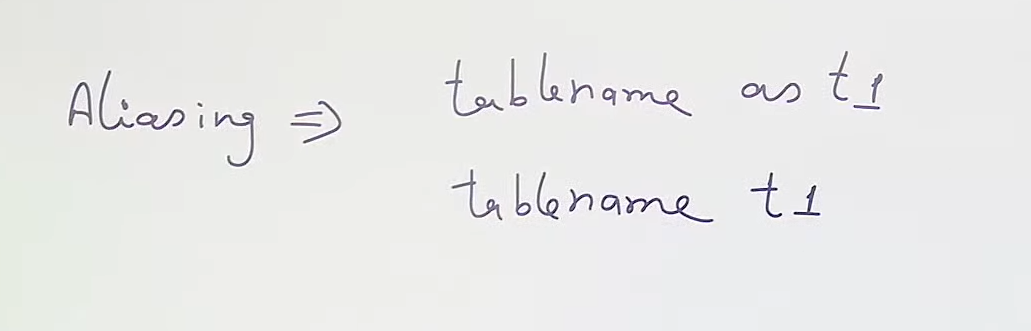 Aliasing => tablename as t1
tablename t1